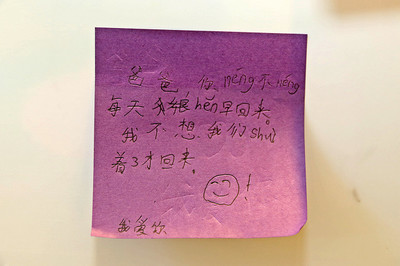 爸爸,你néng不néng
每天 hěn早回来。
我不想我们shuì
着3才回来。
!
我爱饮